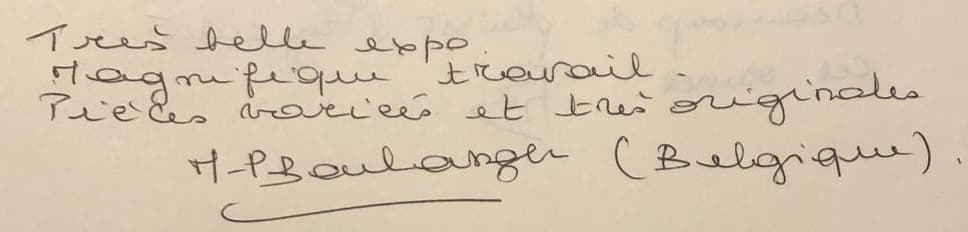 Très belle expo.
Magnifique travail.
Pièces variées et très originales
M-P Boulanger (Belgique).